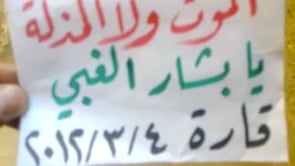 الموت ولا المذلة
يا بشار الغبي
قارة ٢٠١٢/٣/٤